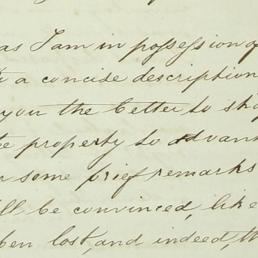 as I am in possession of
a concise description
you the better to sho
property to advan
some brief remarks
be convinced, like
lost, and indeed, th